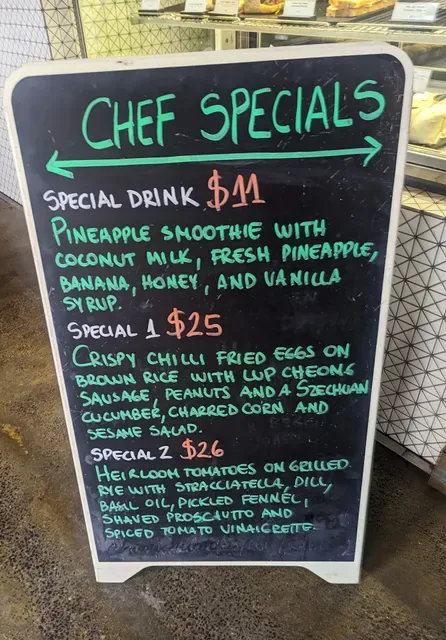 CHEF SPECIALS
SPECIAL DRINK $11
PINEAPPLE SMOOTHIE WITH
COCONUT MILK, FRESH PINEAPPLE,
BANANA, HONEY, AND VANILLA
SYRUP.
SPECIAL 1 $25
CRISPY CHILLI FRIED EGGS ON
BROWN RICE WITH LUP CHEONG
SAUSAGE, PEANUTS AND A SZECHUAN
CUCUMBER, CHARRED CORN AND
SESAME SALAD.
SPECIAL 2 $26
HEIRLOOM TOMATOES ON GRILLED
RYE WITH STRACCIATELLA, DILL,
BASIL OIL, PICKLED FENNEL,
SHAVED PROSCIUTTO AND
SPICED TOMATO VINAIGRETTE.